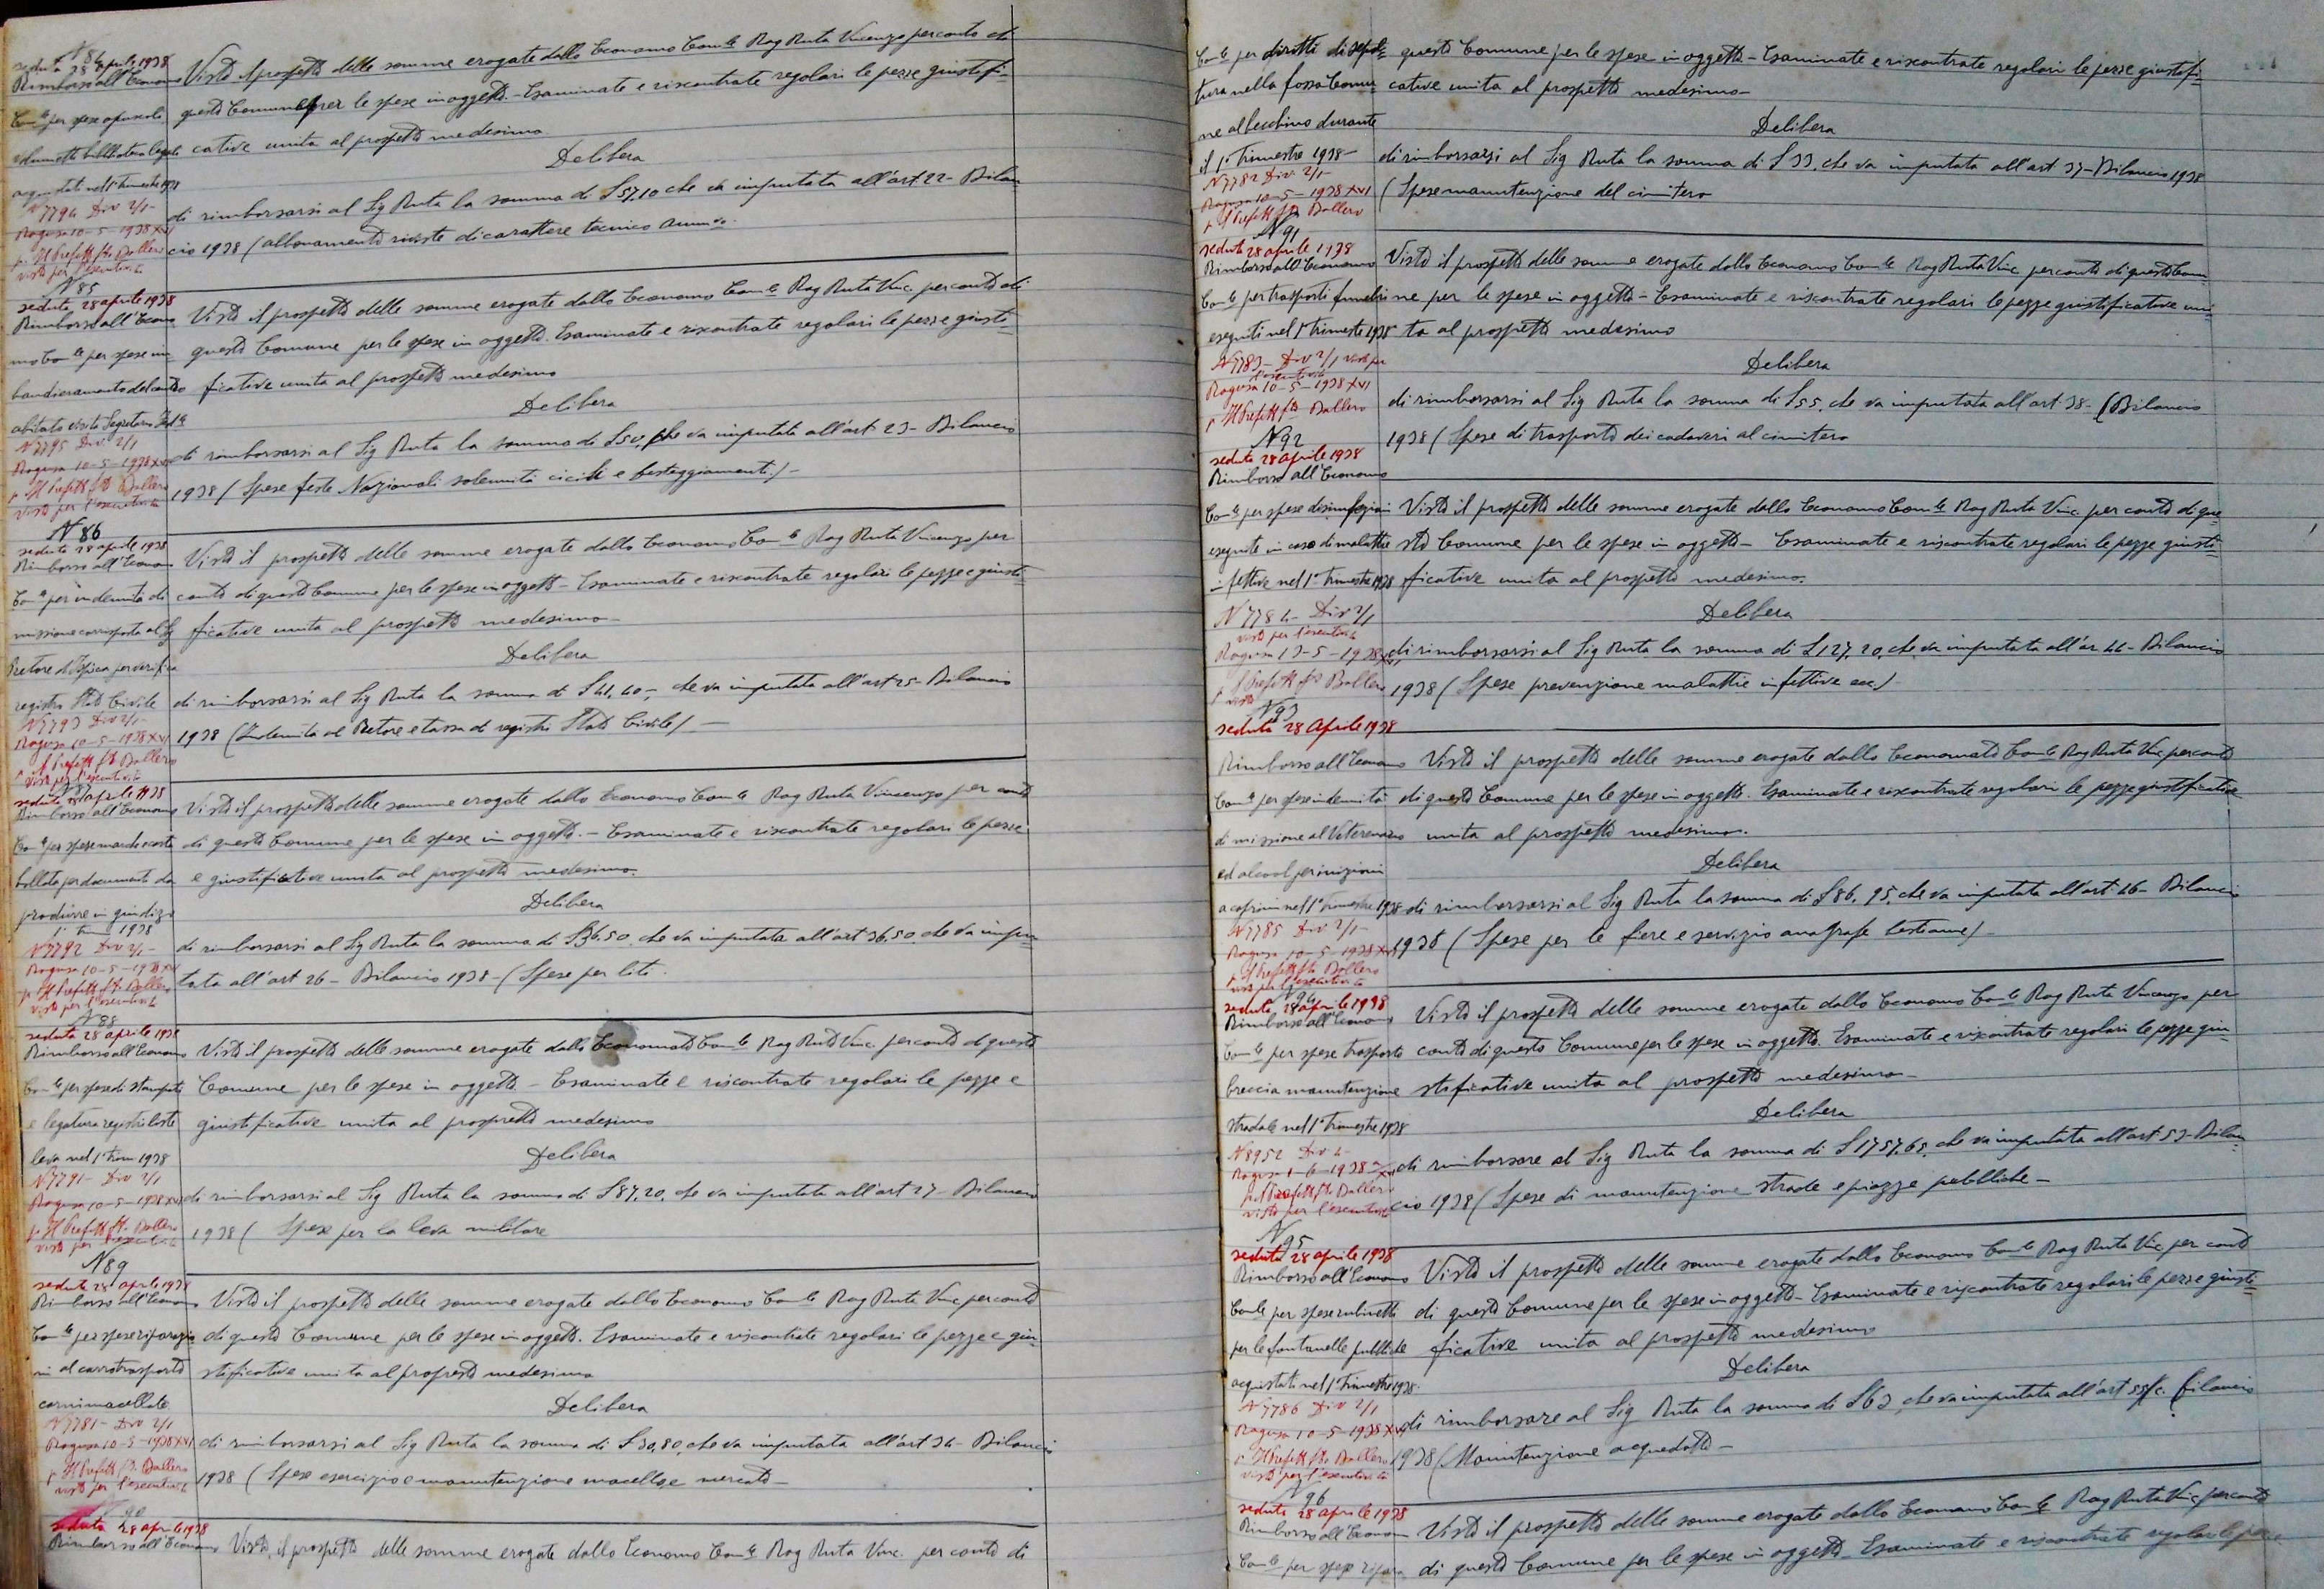 N 84
seduta 28 aprile 1938
Rimborso all'Economo
Com.le per spese opuscoli
acquistati nel 1° trimestre 1938
N 7794 Div 2/1-
Ragusa 10-5-1938 XVI
p. Il Prefetto fto Ballero
visto per l'esecutività
Visto il prospetto delle somme erogate dallo Economo Com.le Rag Ruta Vincenzo per conto di
questo Comune per le spese in oggetto.- Esaminate e riscontrate regolari le pezze giustifi-
cative unita al prospetto medesimo
Delibera
di rimborsarsi al Sig Ruta la somma di £ 57,10 che va imputata all'art 22- Bilan
cio 1938 (abbonamento riviste di carattere tecnico amm.vo.
N 85
seduta 28 aprile 1938
Rimborso all'Econo
mo Com.le per spese im
bandieramento del centro
abitato visita Segretario Fed.le
N 7795 Div 2/1
Ragusa 10-5-1938 XVI
p Il Prefetto fto Ballero
visto per l'esecutività
Visto il prospetto delle somme erogate dallo Economo Com.le Rag Ruta Vinc. per conto di
questo Comune per le spese in oggetto. Esaminate e riscontrate regolari le pezze giusti-
ficative unita al prospetto medesimo
Delibera
di rimborsarsi al Sig Ruta la somma di £ 50, che va imputata all'art 23- Bilancio
1938 (Spese feste Nazionali solennità civili e festeggiamenti)-
N 86
seduta 28 aprile 1938
Rimborso all'Econom
Com.le per indennità di
missione corrisposta al Sig
Pretore di Ispica per verifica
registri Stato Civile
N 7793 Div 2/1-
Ragusa 10-5-1938 XVI
p Prefetto fto Ballero
visto per l'esecutività
Visto il prospetto delle somme erogate dallo Economo Com.le Rag Ruta Vincenzo per
conto di questo Comune per le spese in oggetto- Esaminate e riscontrate regolari le pezze e giusti-
ficative unita al prospetto medesimo-
Delibera
di rimborsarsi al Sig Ruta la somma di £ 44,40-, che va imputata all'art 25- Bilancio
1938 (Indennità al Pretore e tassa di registri Stato Civile)-
N 87
seduta 28 aprile 1938
Rimborso all'Economo
Com.le per spese marche e carta
bollata per documenti da
produrre in giudizio
1° trim 1938
N 7792 Div 2/1-
Ragusa 10-5-1938 XVI
p Il Prefetto fto Ballero
visto per l'esecutività
Visto il prospetto delle somme erogate dallo Economo Com.le Rag Ruta Vincenzo per conto
di questo Comune per le spese in oggetto.- Esaminate e riscontrate regolari le pezze
e giustificative unita al prospetto medesimo.
Delibera
di rimborsarsi al Sig Ruta la somma di £ 36.50. che va imputata all'art 36,50. che va impu-
tata all'art 26- Bilancio 1938-(Spese per liti.
N 88
seduta 28 aprile 1938
Rimborso all'Economo
Com.le per spese di stampati
e legatura registri liste
leva nel 1° trim 1938
N 7791- Div 2/1
Ragusa 10-5-1938 XVI
p. Il Prefetto fto Ballero
visto per l'esecutività
Visto il prospetto delle somme erogate dallo Economato Com.le Rag Ruta Vinc. per conto di questo
Comune per le spese in oggetto- Esaminate e riscontrate regolari le pezze e
giustificative unita al prospetto medesimo
Delibera
di rimborsarsi al Sig Ruta la somma di £ 87,20, che va imputata all'art 27- Bilancio
1938 ( Spese per la leva militare
N 89
seduta 28 aprile 1938
Rimborso all'Economo
Com.le per spese riparazio
ni al carro trasporto
carni macellate
N 7781- Div 2/1
Ragusa 10-5-1938 XVI
p Il Prefetto fto Ballero
visto per l'esecutività
Visto il prospetto delle somme erogate dallo Economo Com.le Rag Ruta Vinc per conto
di questo Comune per le spese in oggetto. Esaminate e riscontrate regolari le pezze e giu-
stificative unita al prospetto medesimo
Delibera
di rimborsarsi al Sig Ruta la somma di £ 30,80, che va imputata all'art 34- Bilancio
1938 (Spese esercizio e manutenzione macello e mercato-
N 90
seduta 28 aprile 1938
Rimborso all'Economo
Visto, il prospetto delle somme erogate dallo Economo Com.le Rag Ruta Vinc. per conto di
Com.le per diritti di sepol-
tura nella fossa Comu-
ne al becchino durante
il 1° Trimestre 1938-
N 7782 Div 2/1-
Ragusa 10-5-1938 XVI
p Il Prefetto fto Ballero
questo Comune per le spese in oggetto- Esaminate e riscontrate regolari le pezze giustifi-
cative unita al prospetto medesimo-
Delibera
di rimborsarsi al Sig Ruta la somma di £ 33. che va imputata all'art 37- Bilancio 1938
(Spese manutenzione del cimitero
N 91
seduta 28 aprile 1938
Rimborso all'Economo
Com.le per trasporti funebri
eseguiti nel 1° trimestre 1938
N 7783- Div 2/1 visto per
l'esecutività
Ragusa 10-5-1938 XVI
p Il Prefetto fto Ballero
Visto il prospetto delle somme erogate dallo Economo Com.le Rag Ruta Vinc per conto di questo Comu-
ne per le spese in oggetto- Esaminate e riscontrate regolari le pezze giustificative uni-
ta al prospetto medesimo
Delibera
di rimborsarsi al Sig Ruta la somma di £ 55, che va imputata all'art 38- (Bilancio
1938 (Spese di trasporto dei cadaveri al cimitero
N 92
seduta 28 aprile 1938
Rimborso all'Economo
Com.le per spese disinfezioni
eseguite in caso di malattie
infettive nel 1° Trimestre 1938
N 7784- Div 2/1
visto per l'esecutività
Ragusa 13-5-1938 XVI
p Il Prefetto fto Ballero
Visto il prospetto delle somme erogate dallo Economo Com.le Rag Ruta Vinc. per conto di que-
sto Comune per le spese in oggetto- Esaminate e riscontrate regolari le pezze giusti-
ficative unita al prospetto medesimo.
Delibera
di rimborsarsi al Sig Ruta la somma di £ 127,20, che va imputata all'ar 44- Bilancio
1938 (Spese prevenzione malattie infettive ecc)
N 93
seduta 28 Aprile 1938
Rimborso all'Economo
Com.le per spese indennità
di missione al Veterenario
ed alcool per inizioni
a caprini nel 1° trimestre 1938
N 7785 Div 2/1-
Ragusa 10-5-1938 XVI
p Il Prefetto fto Ballero
visto per l'esecutività
Visto il prospetto delle somme erogate dallo Economato Com.le Rag Ruta Vinc per conto
di questo Comune per le spese in oggetto. Esaminate e riscontrate regolari le pezze giustificative
unita al prospetto medesimo.
Delibera
di rimborsarsi al Sig Ruta la somma di £ 86,95, che va imputata all'art 46- Bilancio
1938 (Spese per le fiere e servizio anagrafe bestiame)-
N 94
seduta 28 aprile 1938
Rimborso all'Economo
Com.le per spese trasporto
breccia manutenzione
stradale nel 1° Trimestre 1938
N 8952 Div 4-
Ragusa 1-6-1938 XVI
p. Il Prefetto fto Ballero
visto per l'esecutività
Visto il prospetto delle somme erogate dallo Economo Com.le Rag Ruta Vincenzo per
conto di questo Comune per le spese in oggetto. Esaminate e riscontrate regolari le pezze giu-
stificative unita al prospetto medesimo-
Delibera
di rimborsare al Sig Ruta la somma di £ 1757,65. che va imputata all'art 53- Bilan-
cio 1938 (Spese di manutenzione strade e piazze pubbliche-
N 95
seduta 28 aprile 1938
Rimborso all'Economo
Com.le per spese rubinetti
per le fontanelle pubbliche
acquistati nel 1° Trimestre 1938.
N 7786 Div 2/1
Ragusa 10-5-1938 XVI
p Il Prefetto fto Ballero
visto per l'esecutività
Visto il prospetto delle somme erogate dallo Economo Com.le Rag Ruta Vinc per conto
di questo Comune per le spese in oggetto- Esaminate e riscontrate regolari le pezze giusti-
ficative unita al prospetto medesimo
Delibera
di rimborsare al Sig Ruta la somma di £ 63, che va imputata all'art 55/c. (bilancio
1938 (Manutenzione acquedotto-
N 96
seduta 28 aprile 1938
Rimborso all'Econom
Com.le per spese ripara
Visto il prospetto delle somme erogate dallo Economo Com.le Rag Ruta Vinc per conto
di questo Comune per le spese in oggetto- Esaminate e riscontrate regolari le pezze